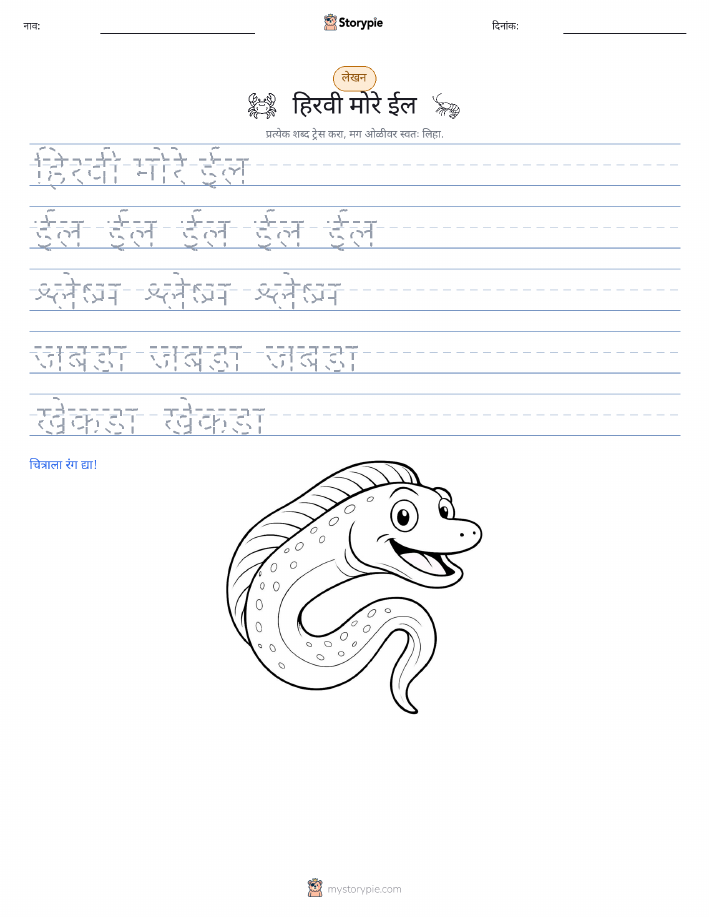 नाव:
Storypie
दिनांक:
लेखन
हिरवी मोरे ईल
प्रत्येक शब्द ट्रेस करा, मग ओळीवर स्वतः लिहा.
हिरवी मोरे ईल
ईल ईल ईल ईल ईल
श्लेष्म श्लेष्म श्लेष्म
जबडा जबडा जबडा
खेकडा खेकडा
चित्राला रंग द्या!
mystorypie.com